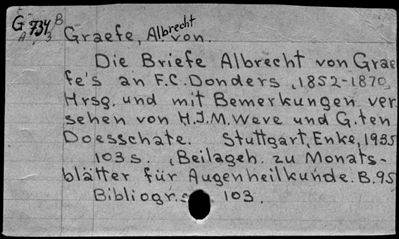 G 734 B
A 3
Graefe, Albrecht von.
Die Briefe Albrecht von Grae
fe's an F.C. Donders, 1852-1870,
Hrsg. und mit Bemerkungen ver
sehen von H.J.M. Weve und G. ten
Doesschate. Stuttgart, Enke, 1935
103 s. (Beilageh. zu Monats-
blätter für Augenheilkunde. B. 95
Bibliogr. s. 103.